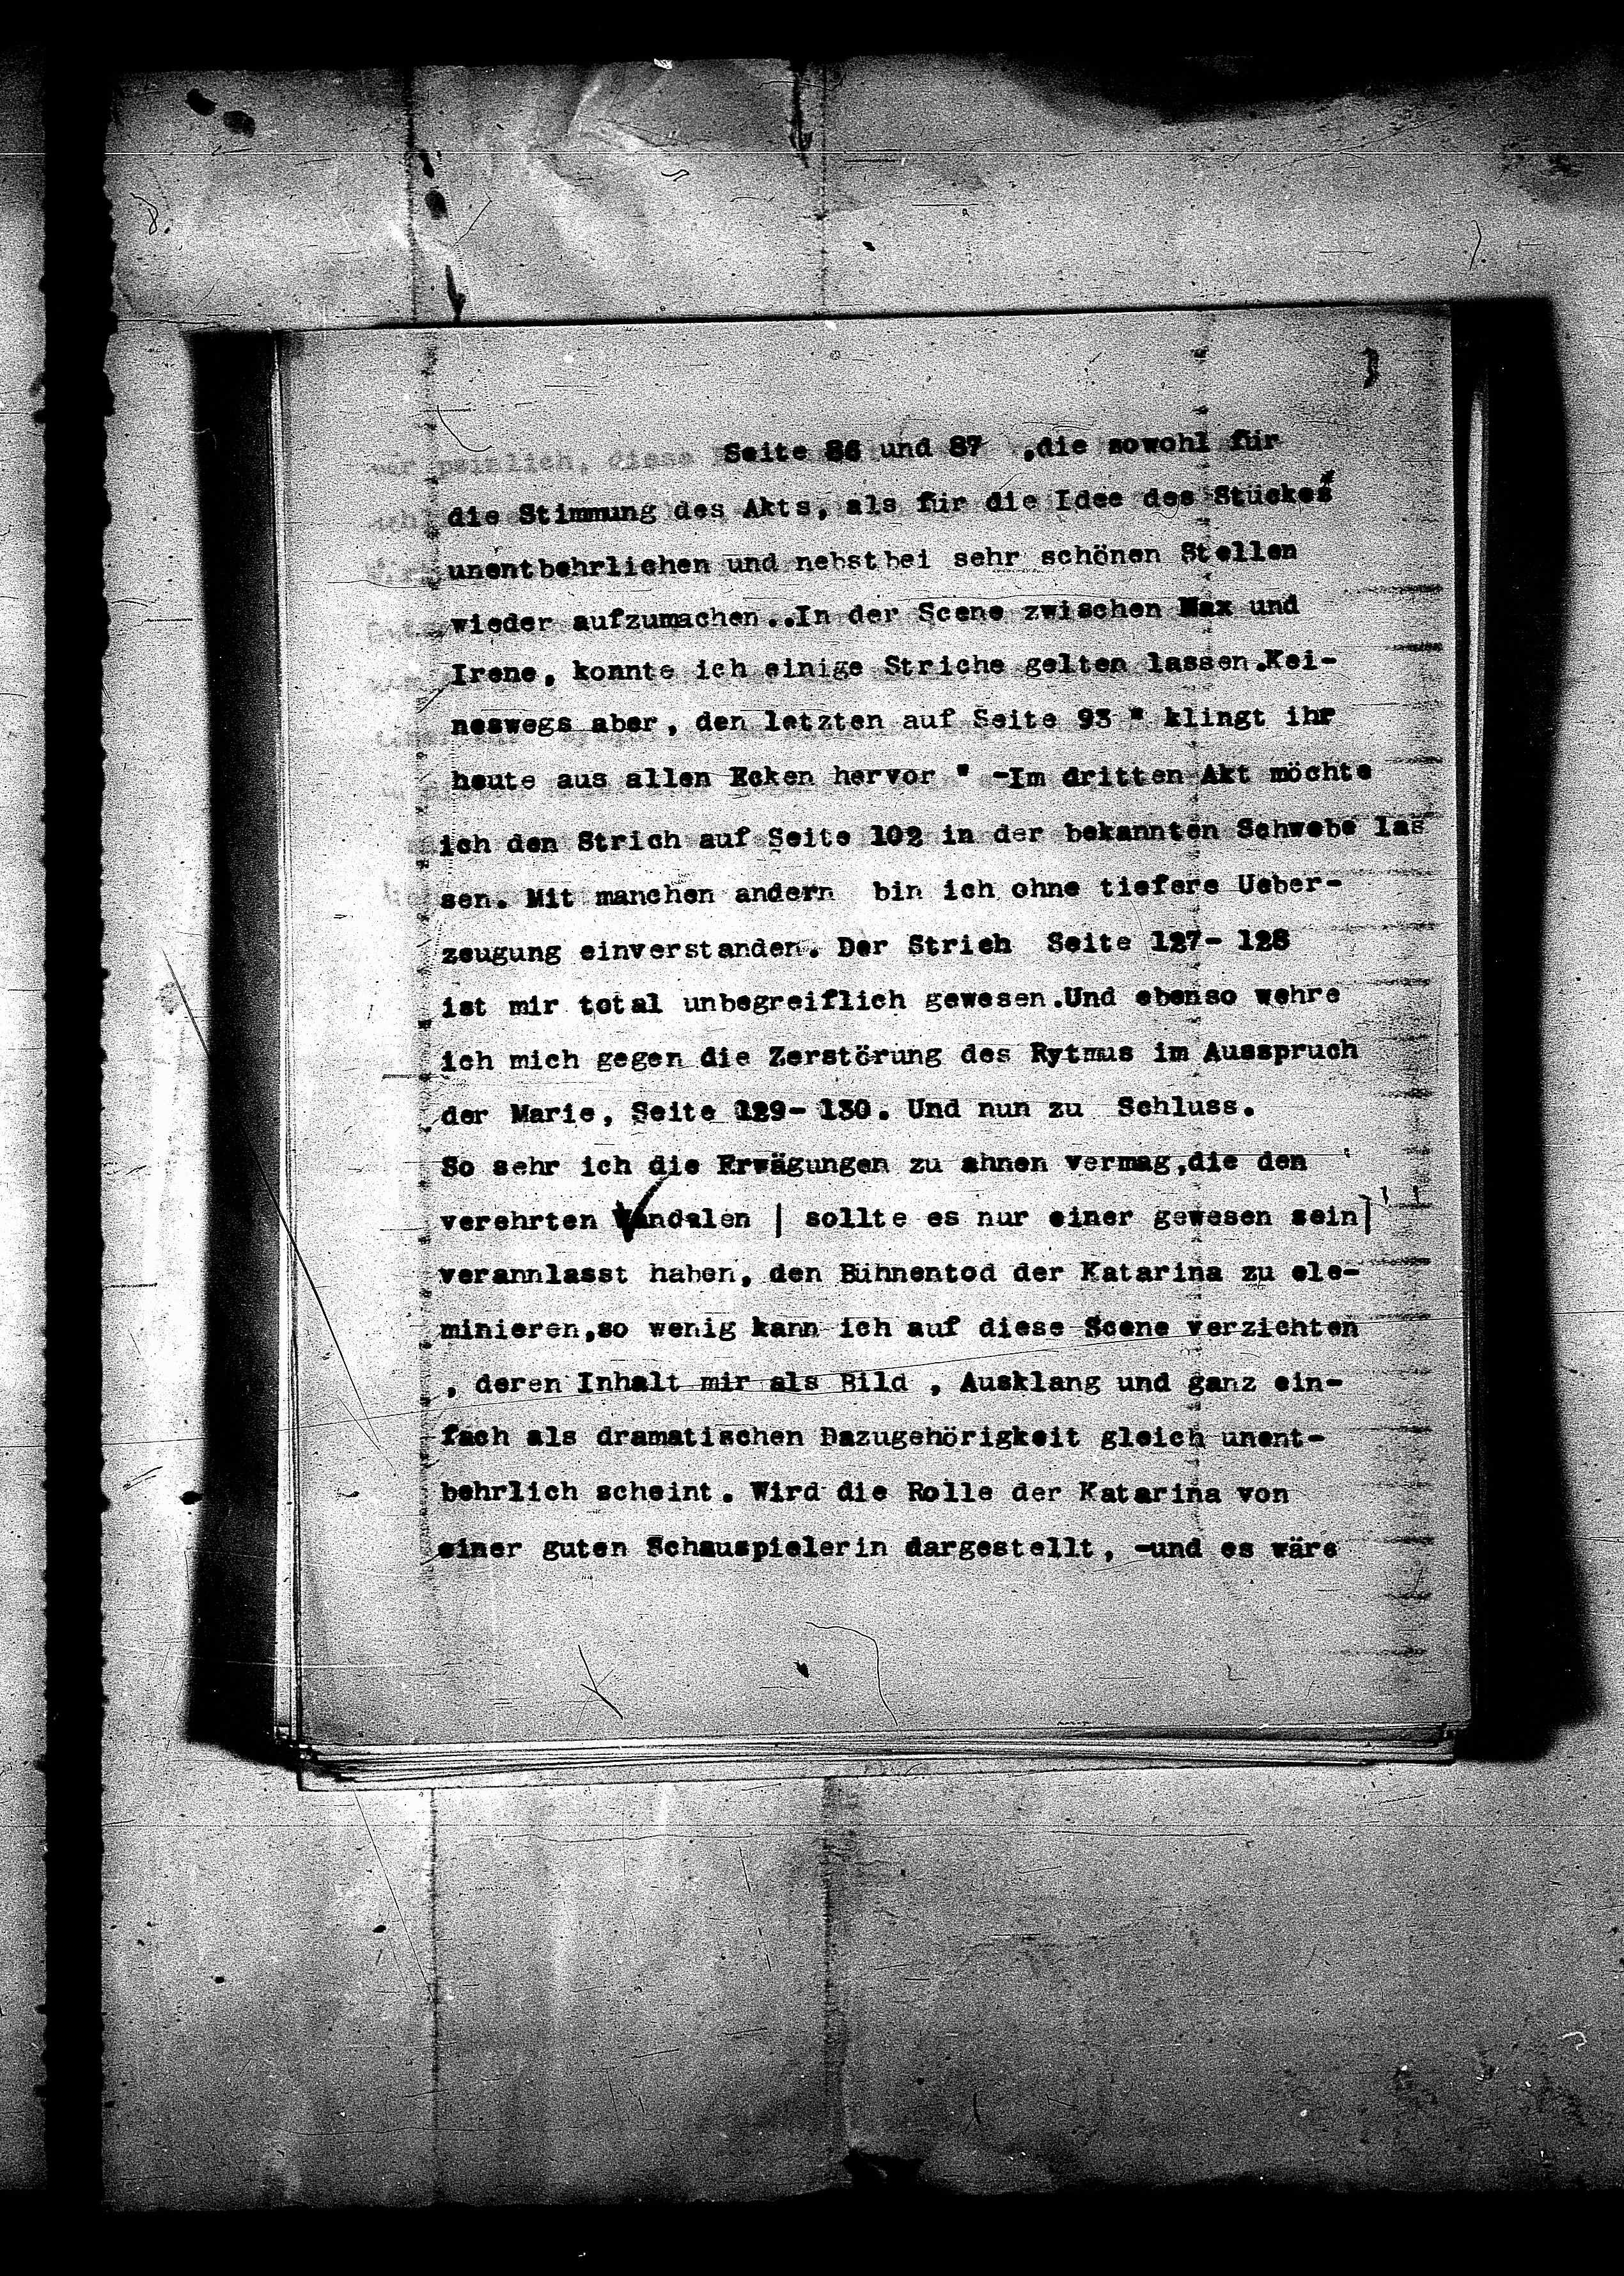 Seite 86 und 87 ,die sowohl für
die Stimmung des Akts, als für die Idee des Stückes
unentbehrlichen und nebstbei sehr schönen Stellen
wieder aufzumachen..In der Scene zwischen Max und
Irene, konnte ich einige Striche gelten lassen.Kei-
neswegs aber, den letzten auf Seite 93 " klingt ihr
heute aus allen Ecken hervor " -Im dritten Akt möchte
ich den Strich auf Seite 102 in der bekannten Schwebe las
sen. Mit manchen andern bin ich ohne tiefere Ueber-
zeugung einverstanden. Der Strich Seite 127- 128
ist mir total unbegreiflich gewesen.Und ebenso wehre
ich mich gegen die Zerstörung des Rytmus im Ausspruch
der Marie, Seite 129- 130. Und nun zu Schluss.
So sehr ich die Erwägungen zu ahnen vermag,die den
verehrten Vandalen | sollte es nur einer gewesen sein|
verannlasst haben, den Bühnentod der Katarina zu ele-
minieren,so wenig kann ich auf diese Scene verzichten
, deren Inhalt mir als Bild , Ausklang und ganz ein-
fach als dramatischen Dazugehörigkeit gleich unent-
behrlich scheint. Wird die Rolle der Katarina von
einer guten Schauspielerin dargestellt, -und es wäre